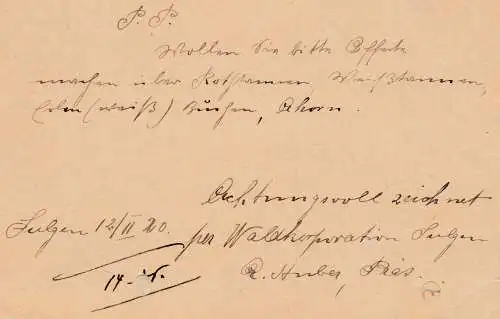 P. P.
Wollen Sie bitte Offerte
machen über Rothtannen, Weißtannen,
Erlen (weiß) Buchen, Ahorn.
Achtungsvoll zeichnet
Sulgen 12/II 20. per Waldkorporation Sulgen
14. R. Huber, Präs.